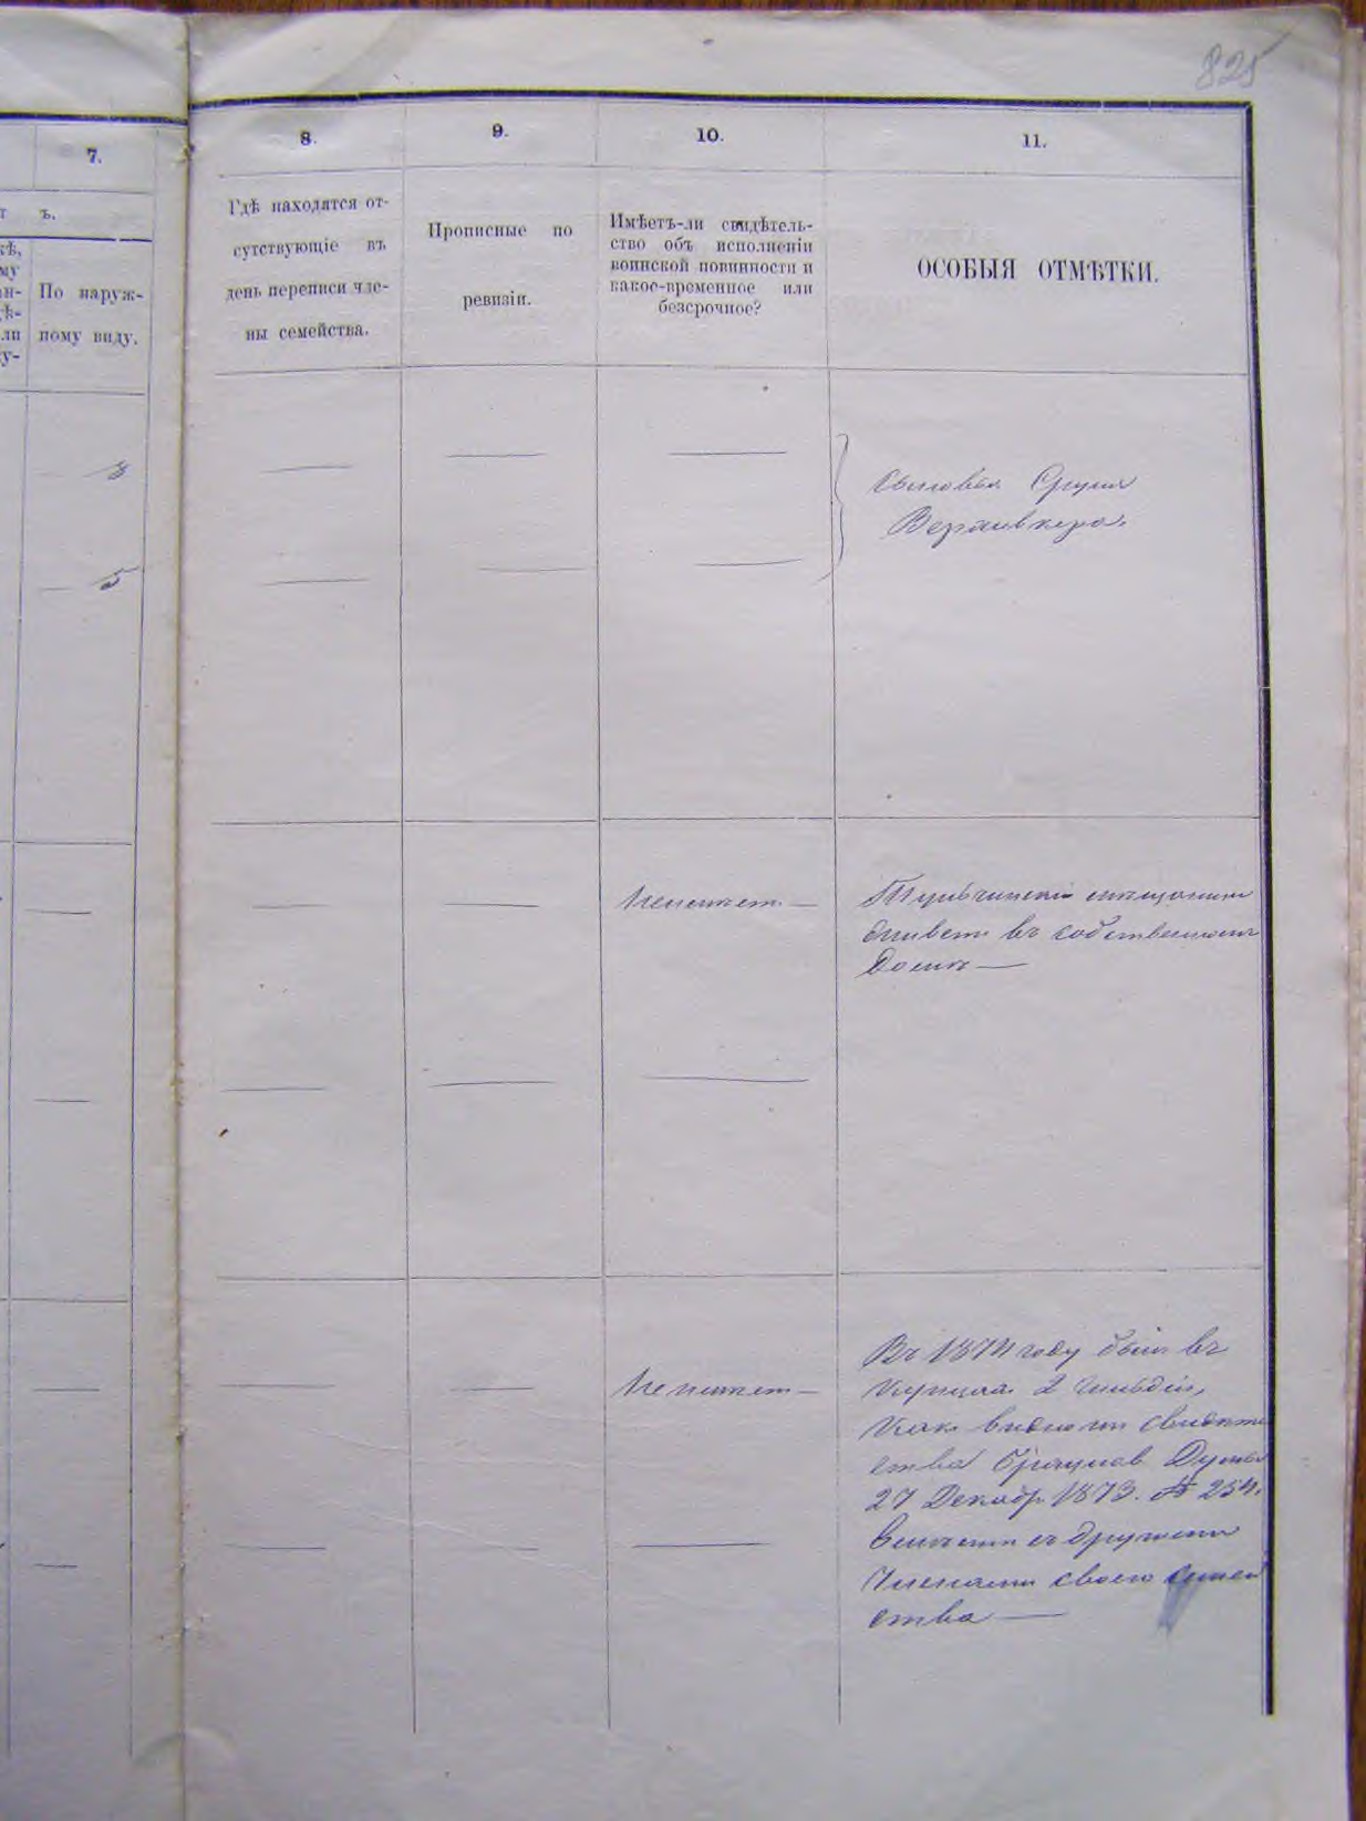 825
7.
8.
9.
10.
11.
ъ.
По наруж-
ному виду.
Гдѣ находятся от-
сутствующіе въ
день переписи чле-
ны семейства.
Прописные по
ревизіи.
Имѣетъ-ли свидѣтель-
ство объ исполненіи
воинской повинности и
какое-временное или
безсрочное?
ОСОБЫЯ ОТМѢТКИ.
3
5
Сыновья Сруля
Неимѣет.
Тульчинскій мѣщанинъ
живетъ въ собственномъ
Домѣ
Неимѣет
Въ 1874 году былъ въ
купцахъ 2 гильдіи,
какъ видно изъ свидѣтель
ства Брацлав Думы
27 Декабр 1873. № 254.
вмѣстѣ съ другими
Членами своего семей
ства